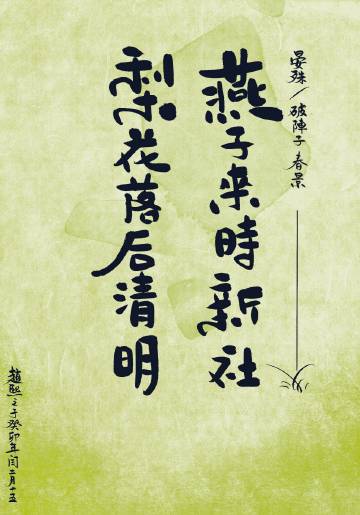 晏殊/破陣子 春景
燕子来時新社
梨花落后清明
趙熙之于癸卯年闰二月十五